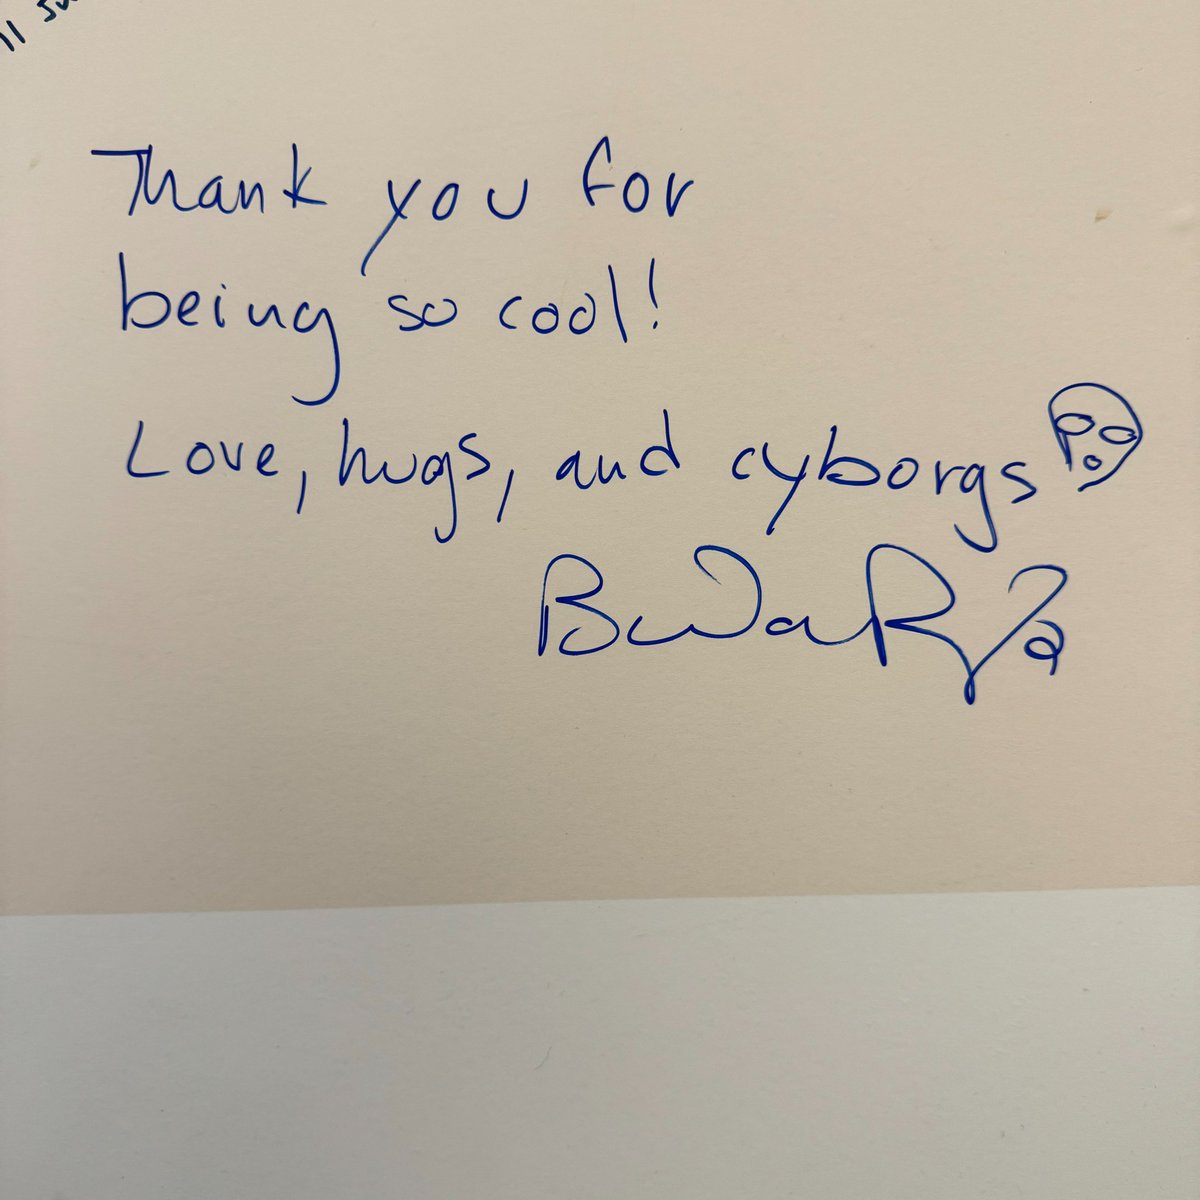 Thank you for
being so cool!
Love, hugs, and cyborgs